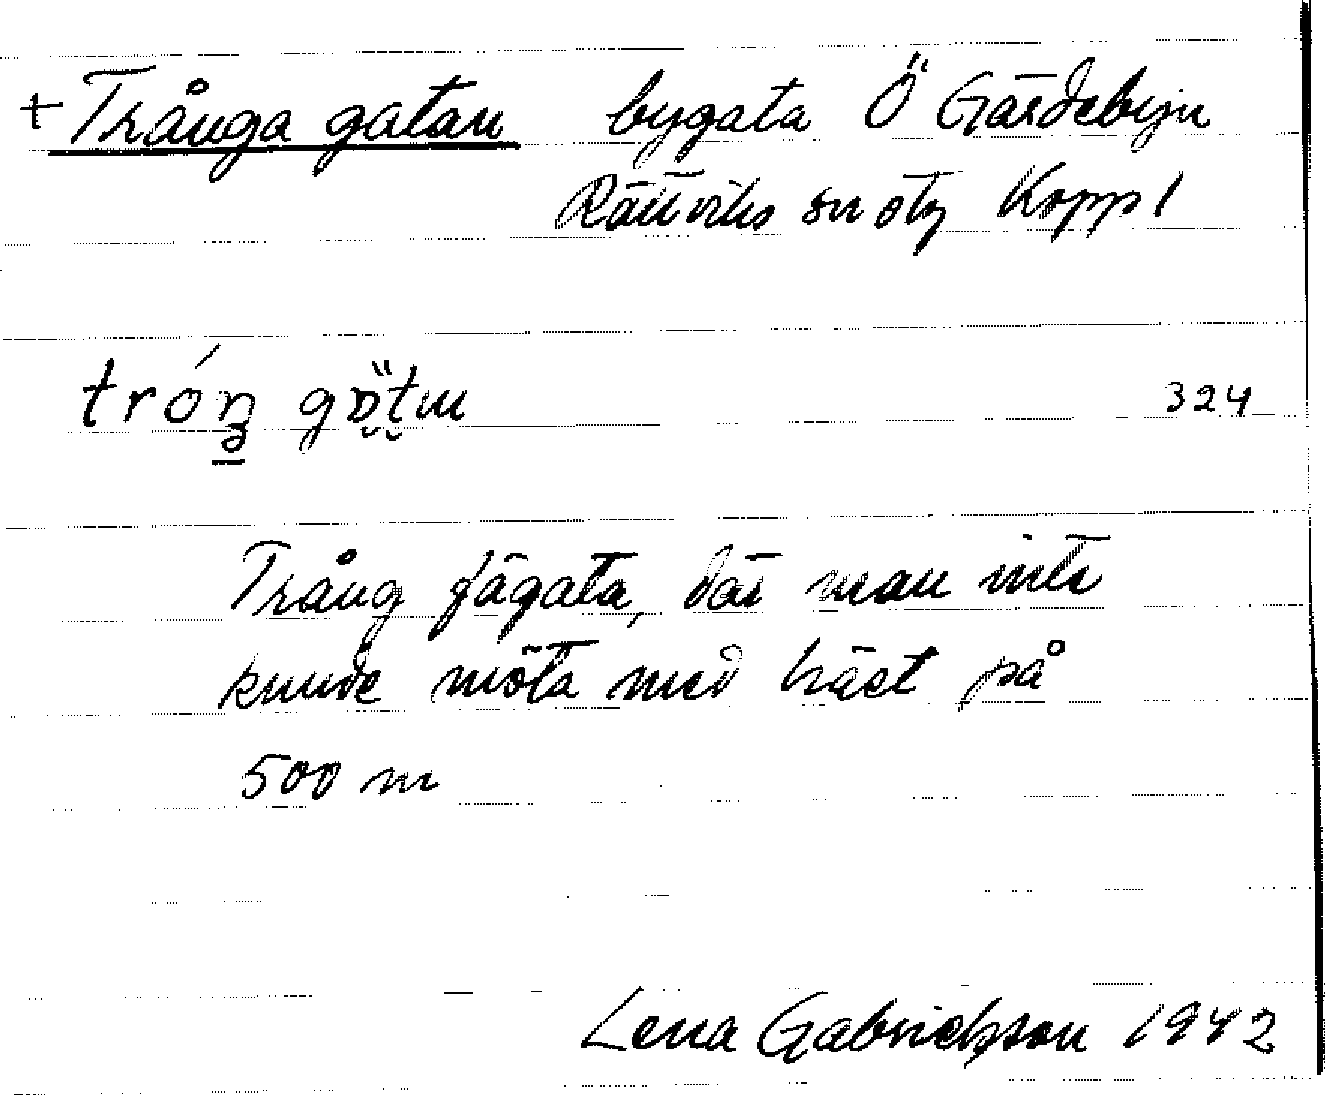 + Trånga gatan bygata Ö Gärdebyn
Rättviks sn Kopp l
324
Trång fägata, där man inte
kunde möta med häst på
500 m
Lena Gabrielsson 1942